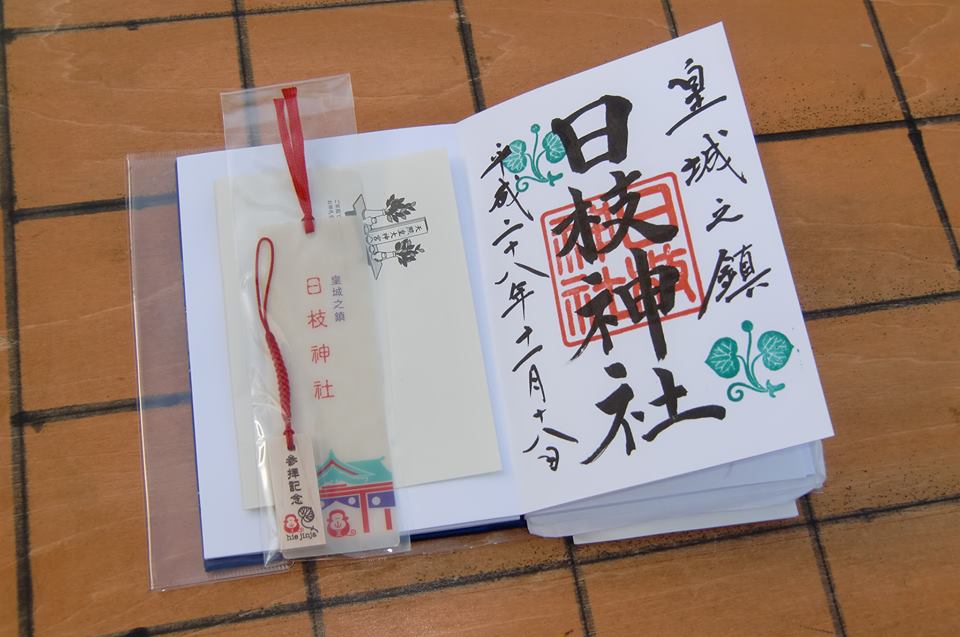 皇城之鎮
日枝神社
日枝神社
平成二十八年十一月十八日
天照皇大神宮
皇城之鎮
日枝神社
参拝記念
hie jinja